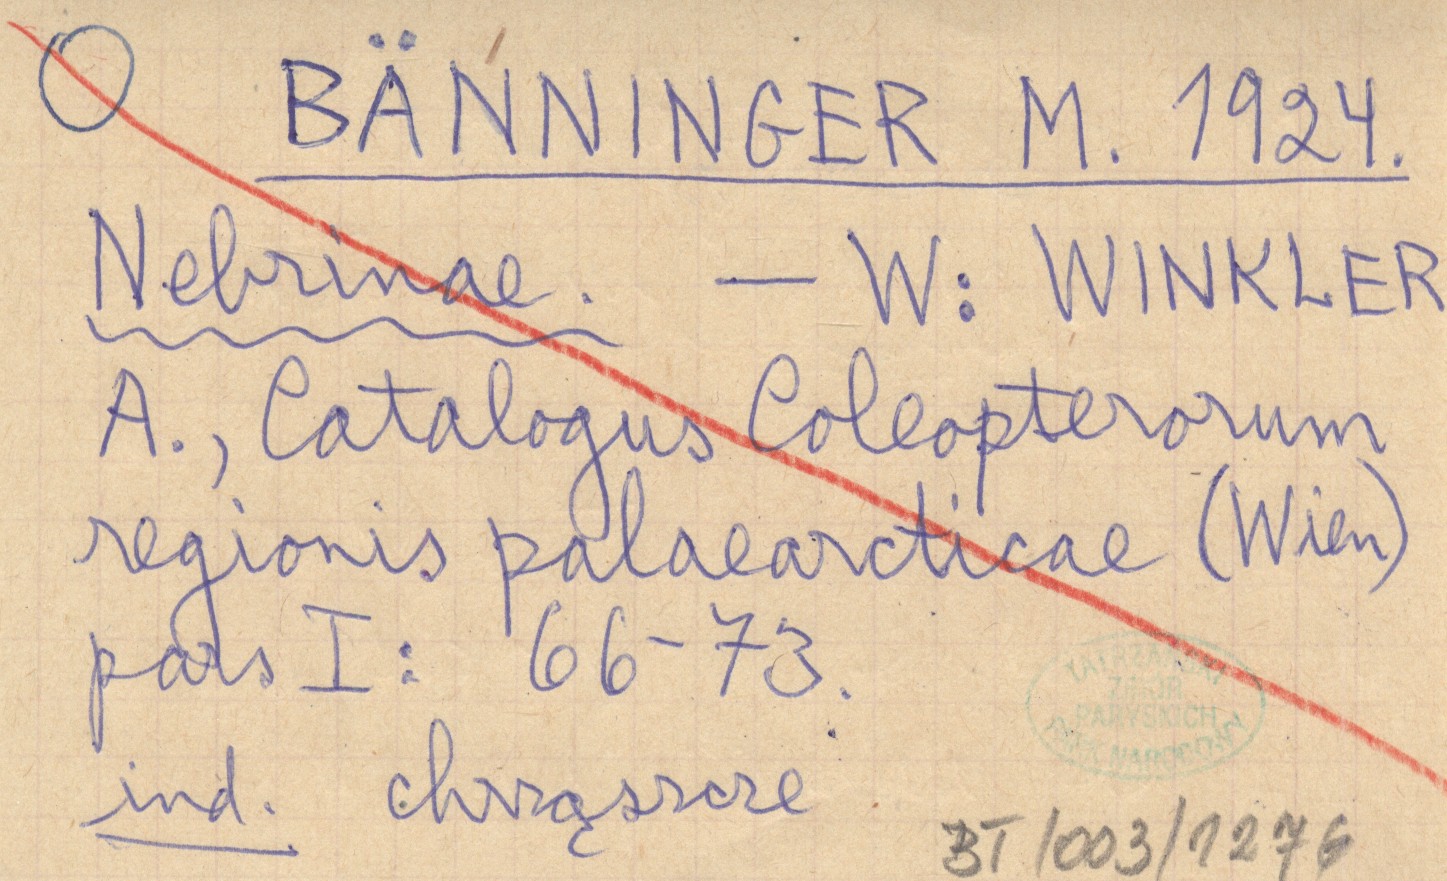 BÄNNINGER M. 1924.
Nebrinae. — W: WINKLER
A., Catalogus Coleopterorum
regionis palaearcticae (Wien)
pars I: 66-73.
ind. chrząszcze
TATRZAŃSKI
ZBIÓR
PARYSKICH
PARK NARODOWY
BT/003/1276